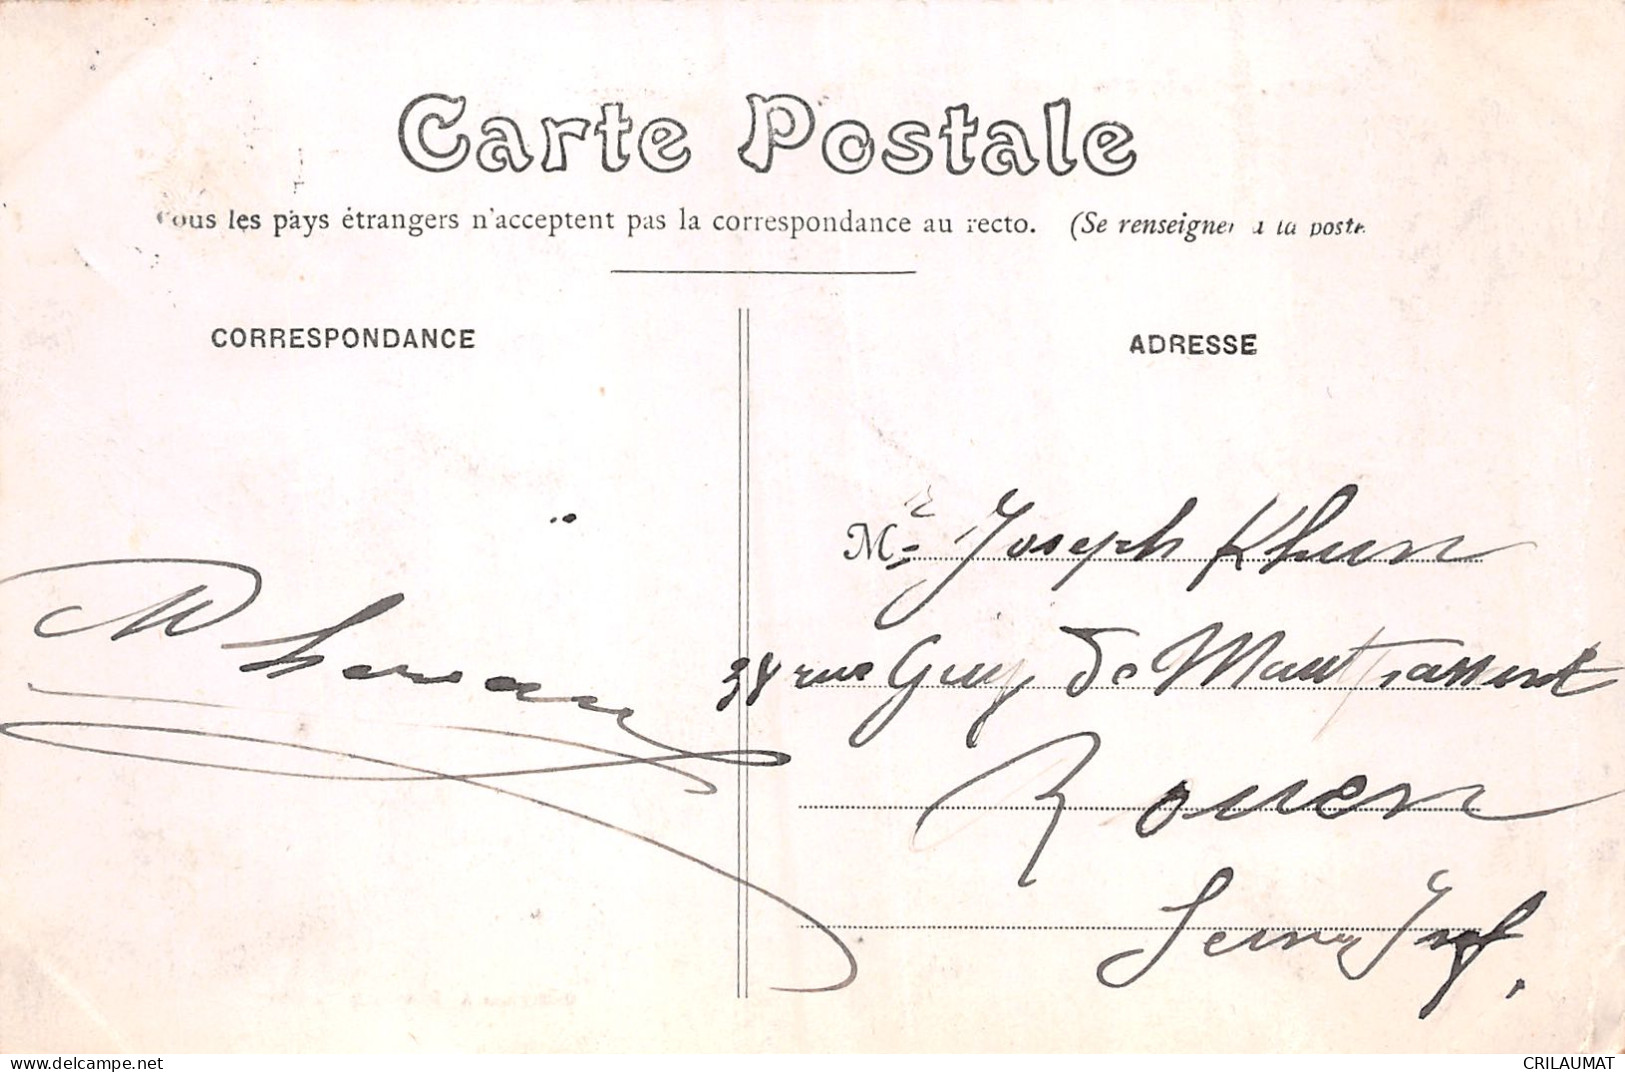 Carte Postale
Tous les pays étrangers n'acceptent pas la correspondance au recto. (Se renseigner à la poste
CORRESPONDANCE
ADRESSE
Mr Joseph Khun
38 rue Guy de Maupassant
Rouen
Seine Inf.
delcampe.net
CRILAUMAT